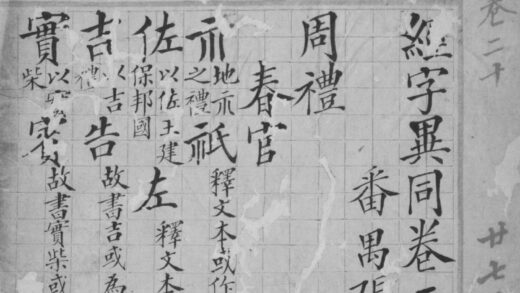 卷二十
廿七
經字異同卷
番禺張
周禮
春官
示 地示之禮 祇 釋文本或作
佐 以佐王建保邦國 左 釋文本
吉 以吉禮 告 故書吉或為
實 以柴 故書實柴或